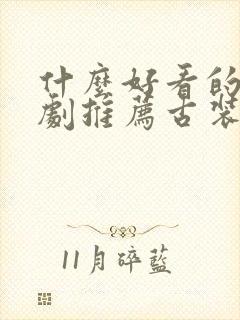 什麼好看的
劇推薦古裝
11月碎藍